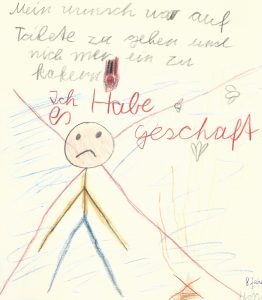 Mein wunsch war auf
zu gehen und
nich mer ein zu
kakern
Ich Habe
es geschaft
8 Jahre